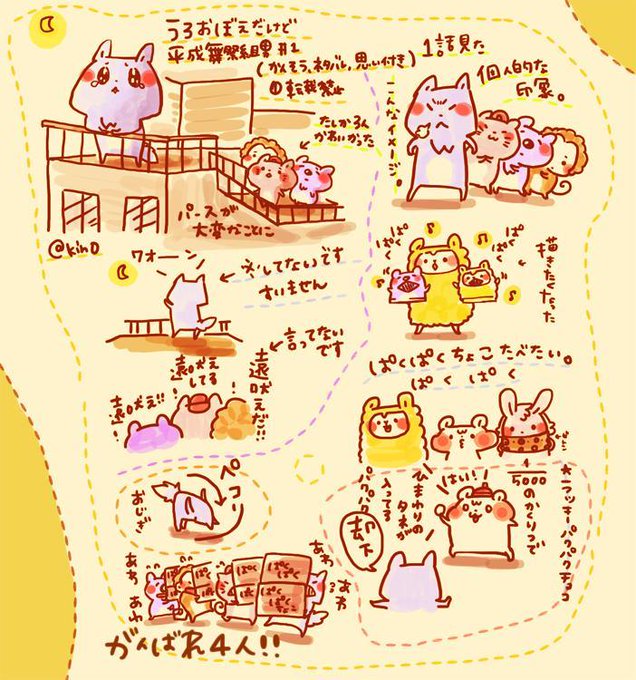 うろおぼえだけど
平成舞祭組男 #1
(かんそう、ネタバレ、思い付き)
①転載禁止
たしか3人
かわいかった
パースが
大変なことに
@kin0
1話見た
個人的な
印象。
こんなイメージ。
ワオーン
←してないです
すいません
←言ってない
です
遠吠え!!
遠吠え
してる
遠吠えだ!!
ぱく
ぱく
ぱく
ぱく
←描きたくなった
ぱくぱくちょこたべたい。
ぱく ぱく
ペコリ
おじぎ
★ラッキーパクパクチョコ
1/5000のかくりつで
ひまわりの
タネが
入ってる
パクパク
はい!
却下
あわ
あわ
あわ
あわ
ぱく
ぱく
ぱく
ぱく
がんばれ4人!!